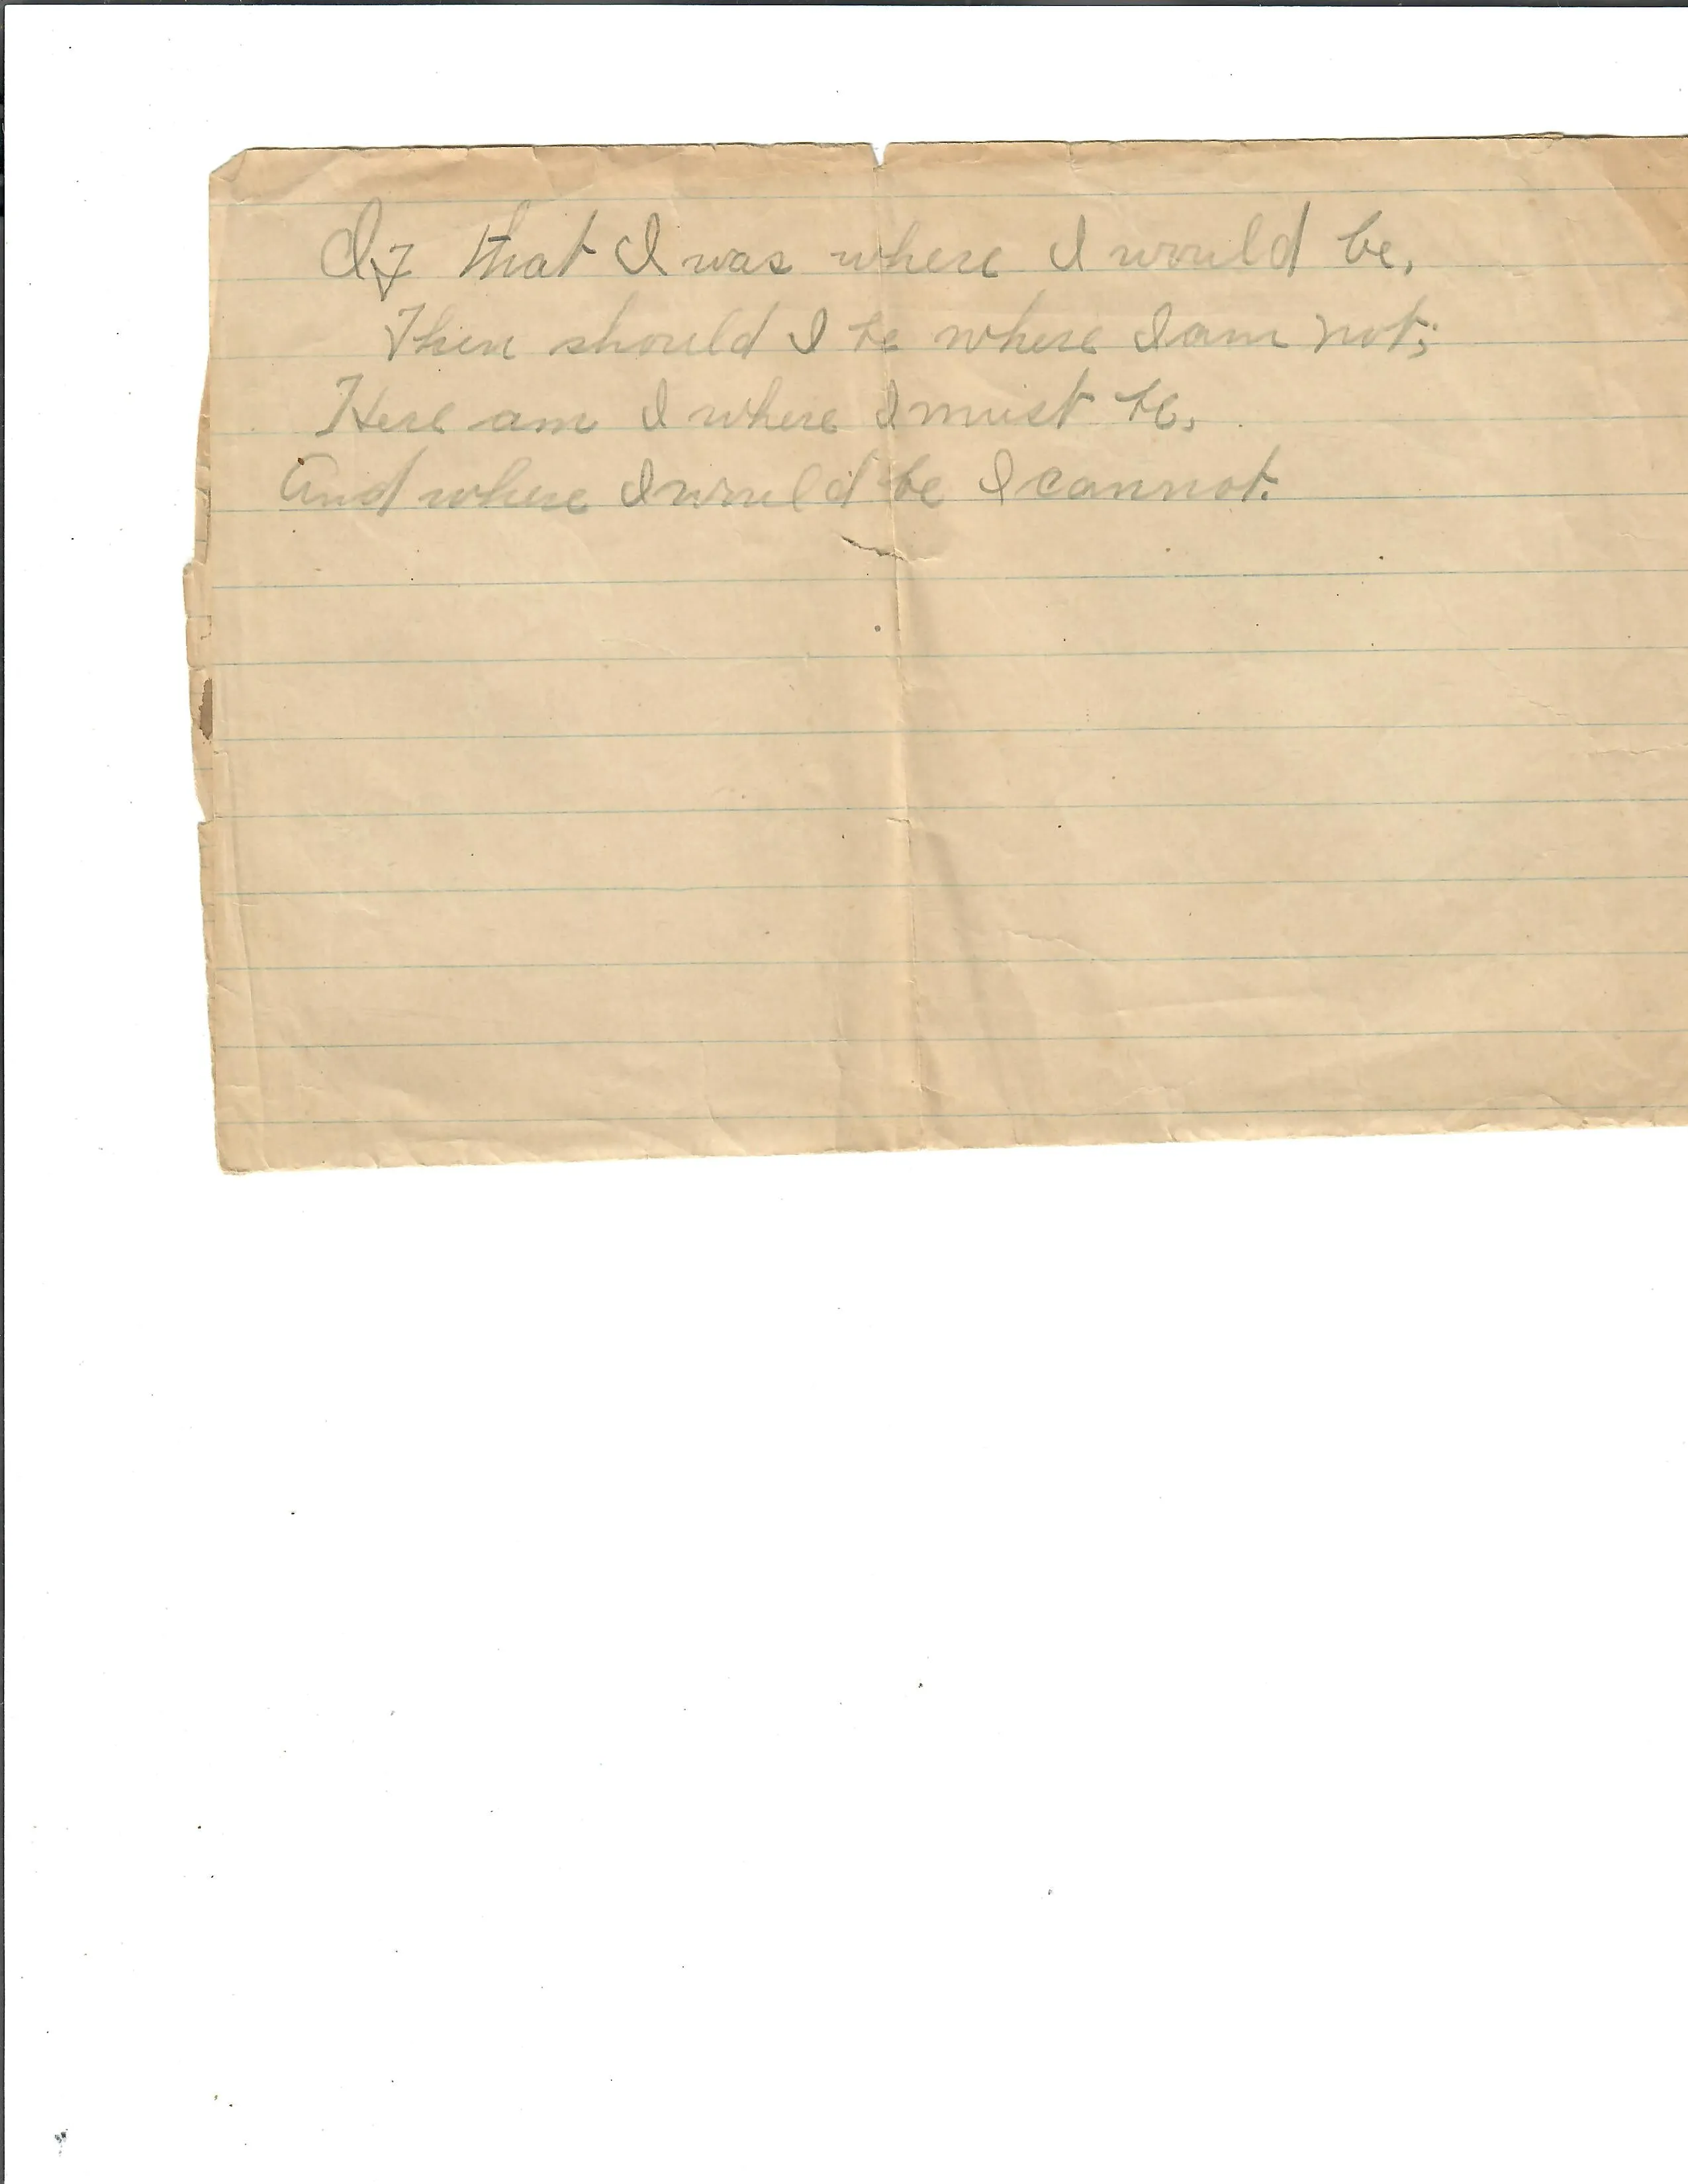 If that I was where I would be,
Then should I be where I am not;
Here am I where I must be,
And where I would be I cannot.